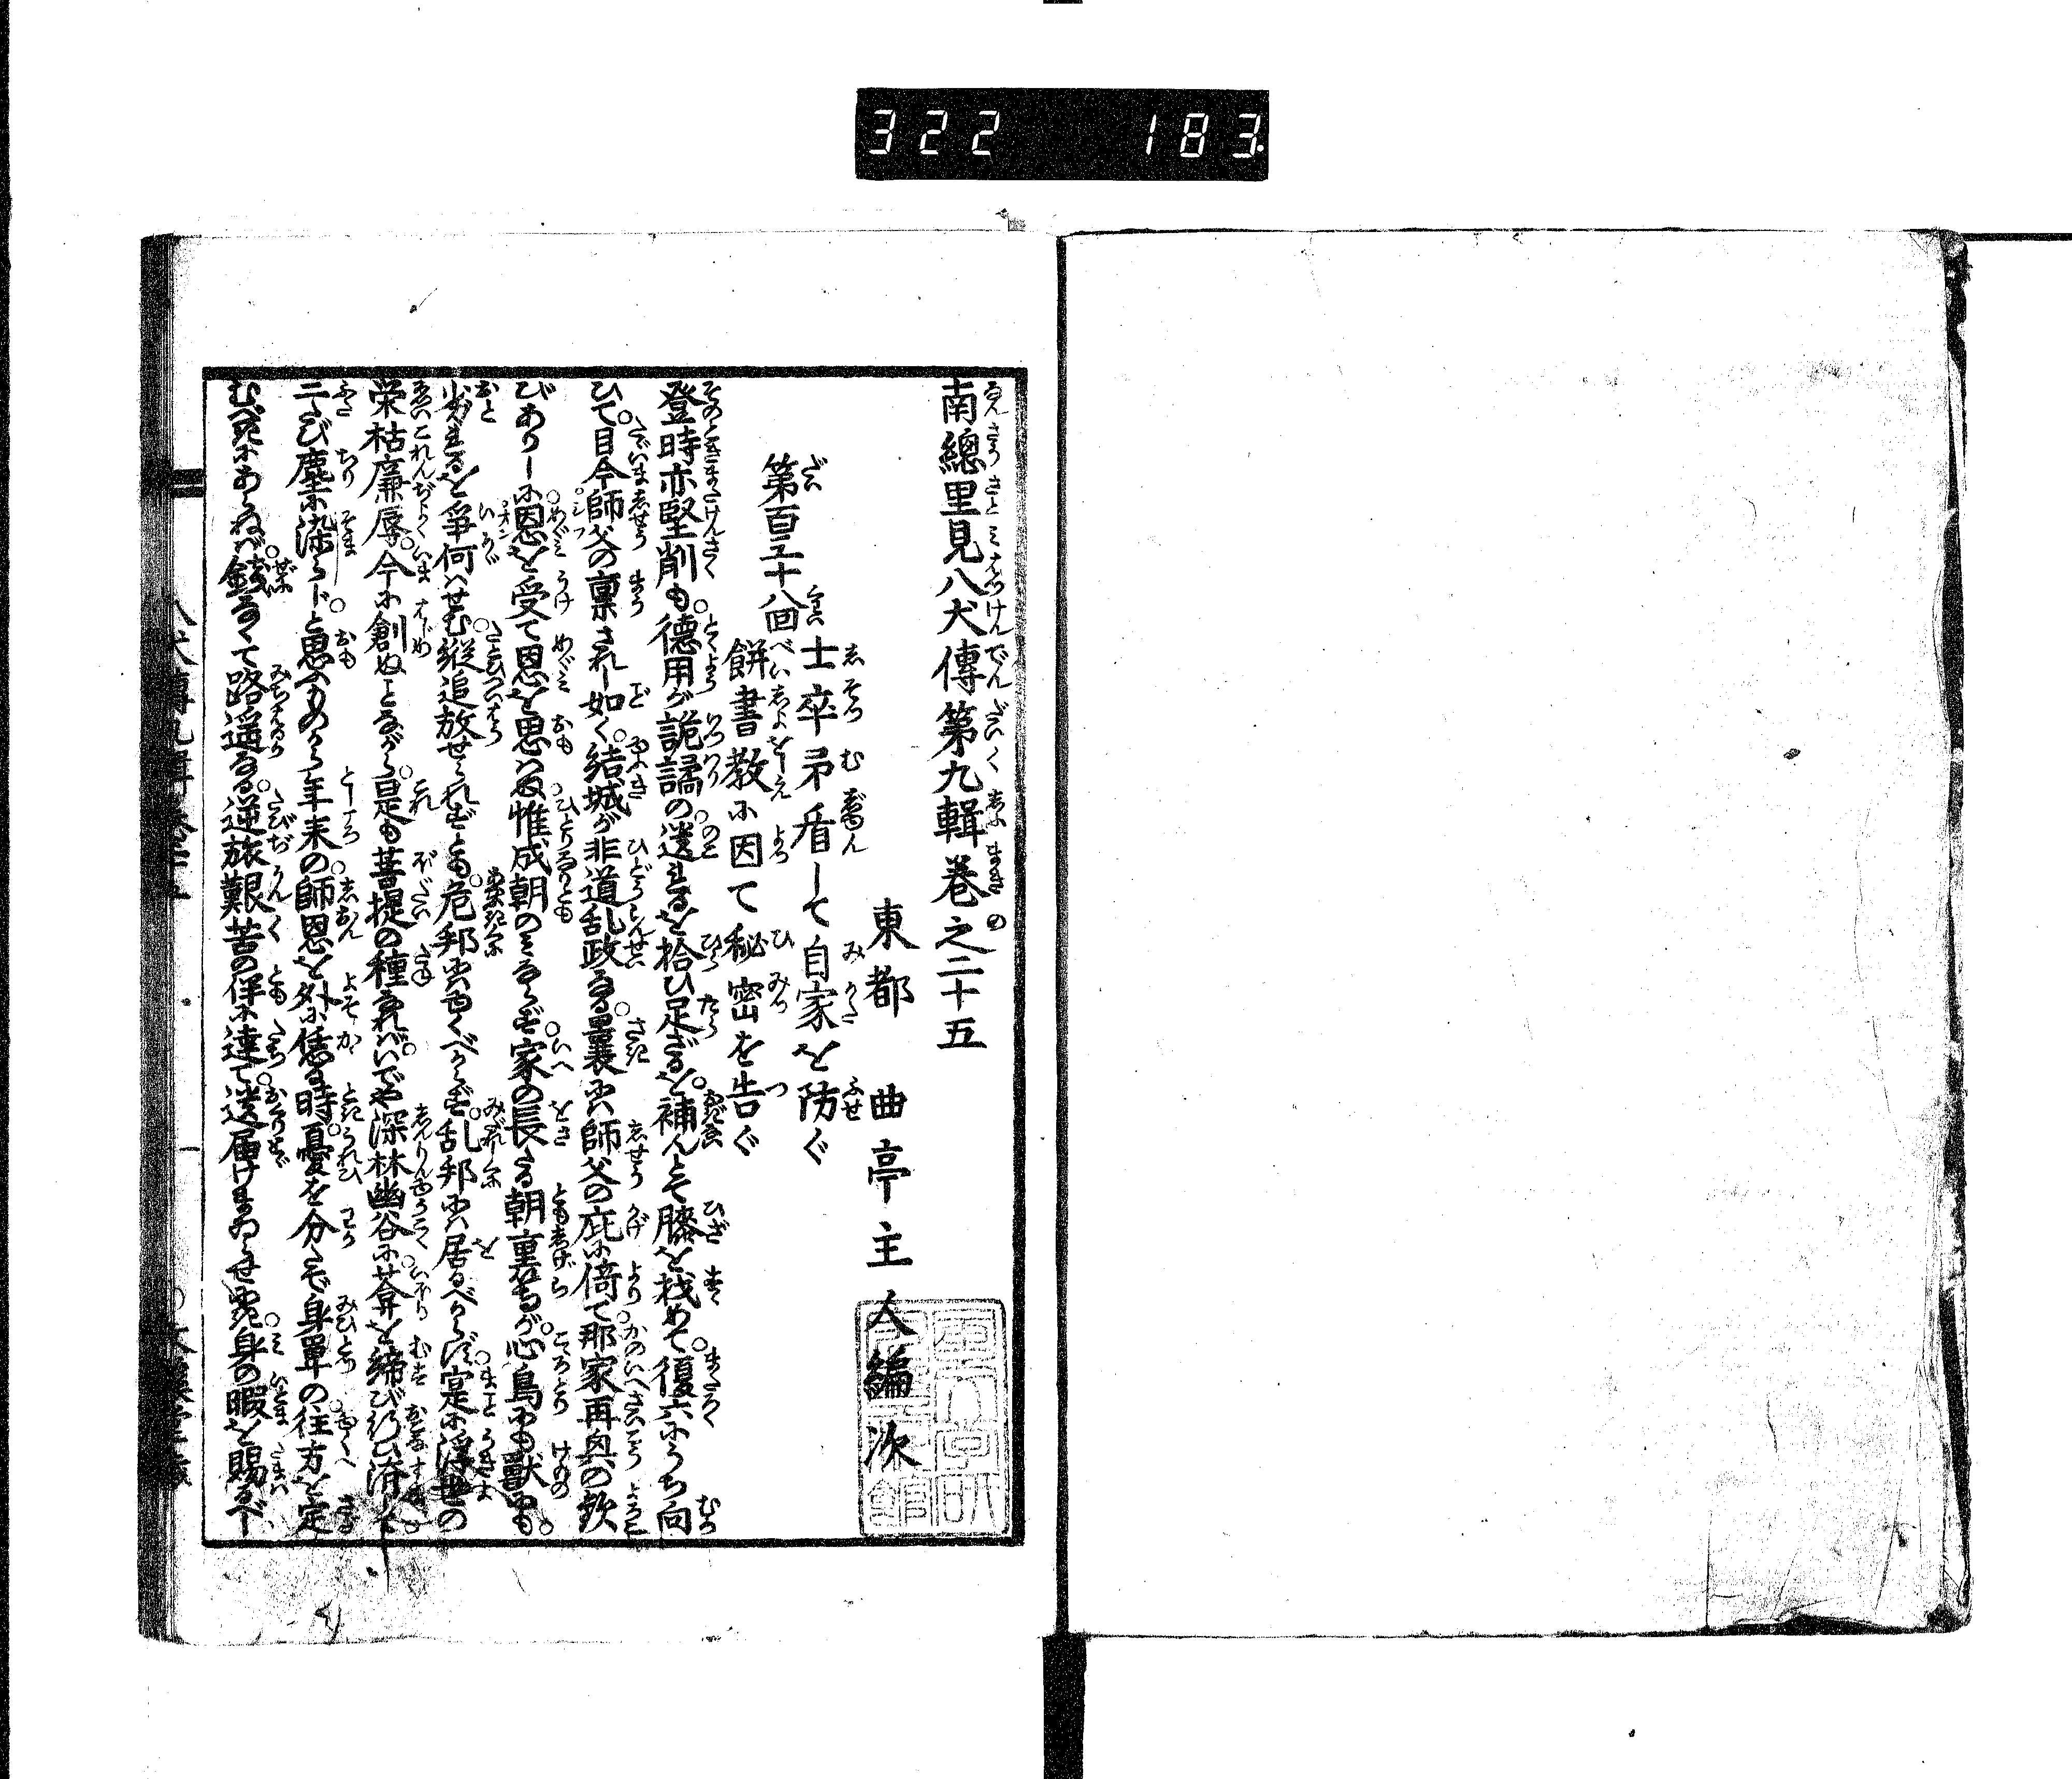 322 183
南總里見八犬傳第九輯巻之二十五
東都 曲亭主人編次
第百三十八回
士卒矛盾して自家を防ぐ
餅書教に因て秘密を告ぐ
登時亦堅削も徳用が詭譎の遺せるを拾ひ足ざるを補んとて膝を找めて復六にうち向
ひて目今師父の稟されし如く結城が非道乱政なる曩には師父の庇に倚て那家再興の歓
びありしに恩を受て恩を思はぬ惟成朝のみならず家の長たる朝重等が心鳥にも獣にも
劣れるを爭何はせむ縦追放せられずとも危邦には由くべからず乱邦には居るべからず寔に浮世の
榮枯廉辱今に創ぬことながら是も菩提の種なればいでや深林幽谷に菴を締び行ひ済して
二たび塵に染らじと思ふものから年来の師恩を外に恁る時憂を分たで身單の往方を定
むべきにあらねば銭なくて路遥なる逆旅艱苦の伴に達て送届けまゐらせき身の暇を賜る下